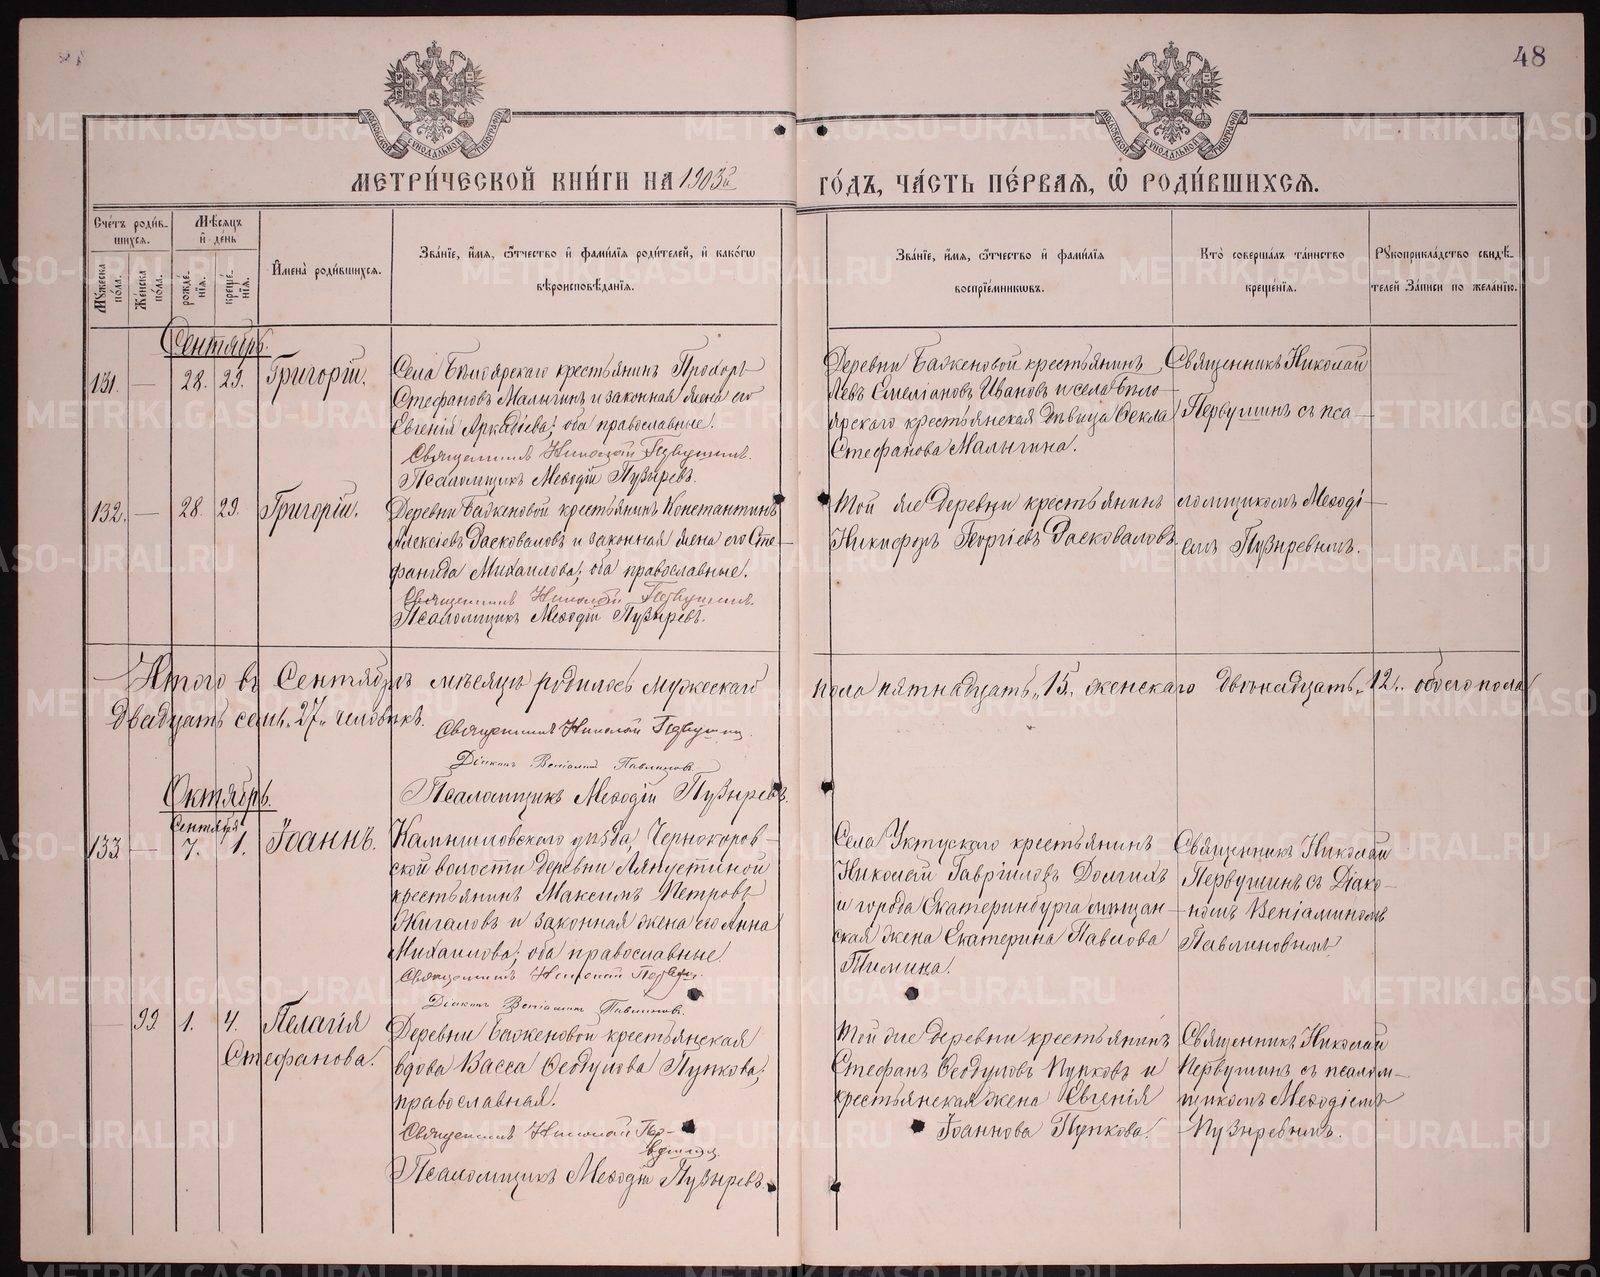 48
МЕТРИ́ЧЕСКОЙ КНИ́ГИ НА 1903й
ГО́ДЪ, ЧА́СТЬ ПЕ́РВАЯ, Ѿ РОДИ́ВШИХСЯ.
Счётъ роди́вшихся.
Му́жеска по́ла.
Же́нска по́ла.
Мѣ́сяцъ и҆ де́нь
рожде́нїя.
креще́нїя.
И҆мена̀ роди́вшихся.
Зва́нїе, и҆́мя, ѻ҆́тчество и҆ фами́лїя роди́телей, и҆ како́гѡ
вѣроисповѣ́данїя.
Зва́нїе, и҆́мя, ѻ҆́тчество и҆ фами́лїя
воспрїе́мниковъ.
Кто̀ соверша́лъ та́инство
креще́нїя.
Рꙋкоприкла́дство свидѣ́-
телей За́писи по жела́нїю.
Сентябрь.
131
—
28. 29.
Григорій.
Села Бѣлоярскаго крестьянинъ Прохоръ
Стефановъ Малыгинъ и законная жена его
Евгенія Аркадіева; оба православные.
Священникъ Николай Первушинъ.
Псаломщикъ Меѳодій Пузыревъ.
Деревни Баженовой крестьянинъ
Левъ Емеліановъ Ивановъ и села Бѣло
ярскаго крестьянская дѣвица Ѳекла
Стефанова Малыгина.
Священникъ Николай
Первушинъ съ пса—
132.
—
28. 29.
Григорій.
Деревни Баженовой крестьянинъ Константинъ
Алексіевъ Расковаловъ и законная жена его Сте—
фанида Михаилова; оба православные.
Священникъ Николай Первушинъ.
Псаломщикъ Меѳодій Пузыревъ.
Той же деревни крестьянинъ
Никифоръ Георгіевъ Расковаловъ.
ломщикомъ Меѳоді—
емъ Пузыревымъ.
Итого въ Сентябрѣ мѣсяцѣ родилось мужескаго пола пятнадцать „15„ женскаго двѣнадцать „12„ обоего пола
двадцать семь „27„ человѣкъ.
Священникъ Николай Первушин
Діаконъ Веніаминъ Павлиновъ.
Псаломщикъ Меѳодій Пузыревъ.
Октябрь.
Сентября
133
—
7. 1.
Іоаннъ.
Камышловскаго уѣзда, Чернокоров—
ской волости деревни Ляпустиной
крестьянинъ Максимъ Петровъ
Жигаловъ и законная жена его Анна
Михаилова; оба православные.
Священникъ Николай Первуш.
Діаконъ Веніаминъ Павлиновъ.
Села Уктускаго крестьянинъ
Николай Гавріиловъ Долгихъ
и города Екатеринбурга мѣщан—
ская жена Екатерина Павлова
Тимина.
Священникъ Николай
Первушинъ съ Діако—
—номъ Веніаминомъ
Павлиновымъ
—
99
1. 4.
Пелагія
Стефанова.
Деревни Баженовой крестьянская
вдова Васса Ѳеодулова Пупкова;
православная.
Священникъ Николай Пер—
вушинъ
Псаломщикъ Меѳодій Пузыревъ.
Той же деревни крестьянинъ
Стефанъ Ѳеодуловъ Пупковъ и
крестьянская жена Евгенія
Іоаннова Пупкова.
Священникъ Николай
Первушинъ съ псалом—
щикомъ Меѳодіемъ
Пузыревымъ.
METRIKI.GASO-URAL.RU